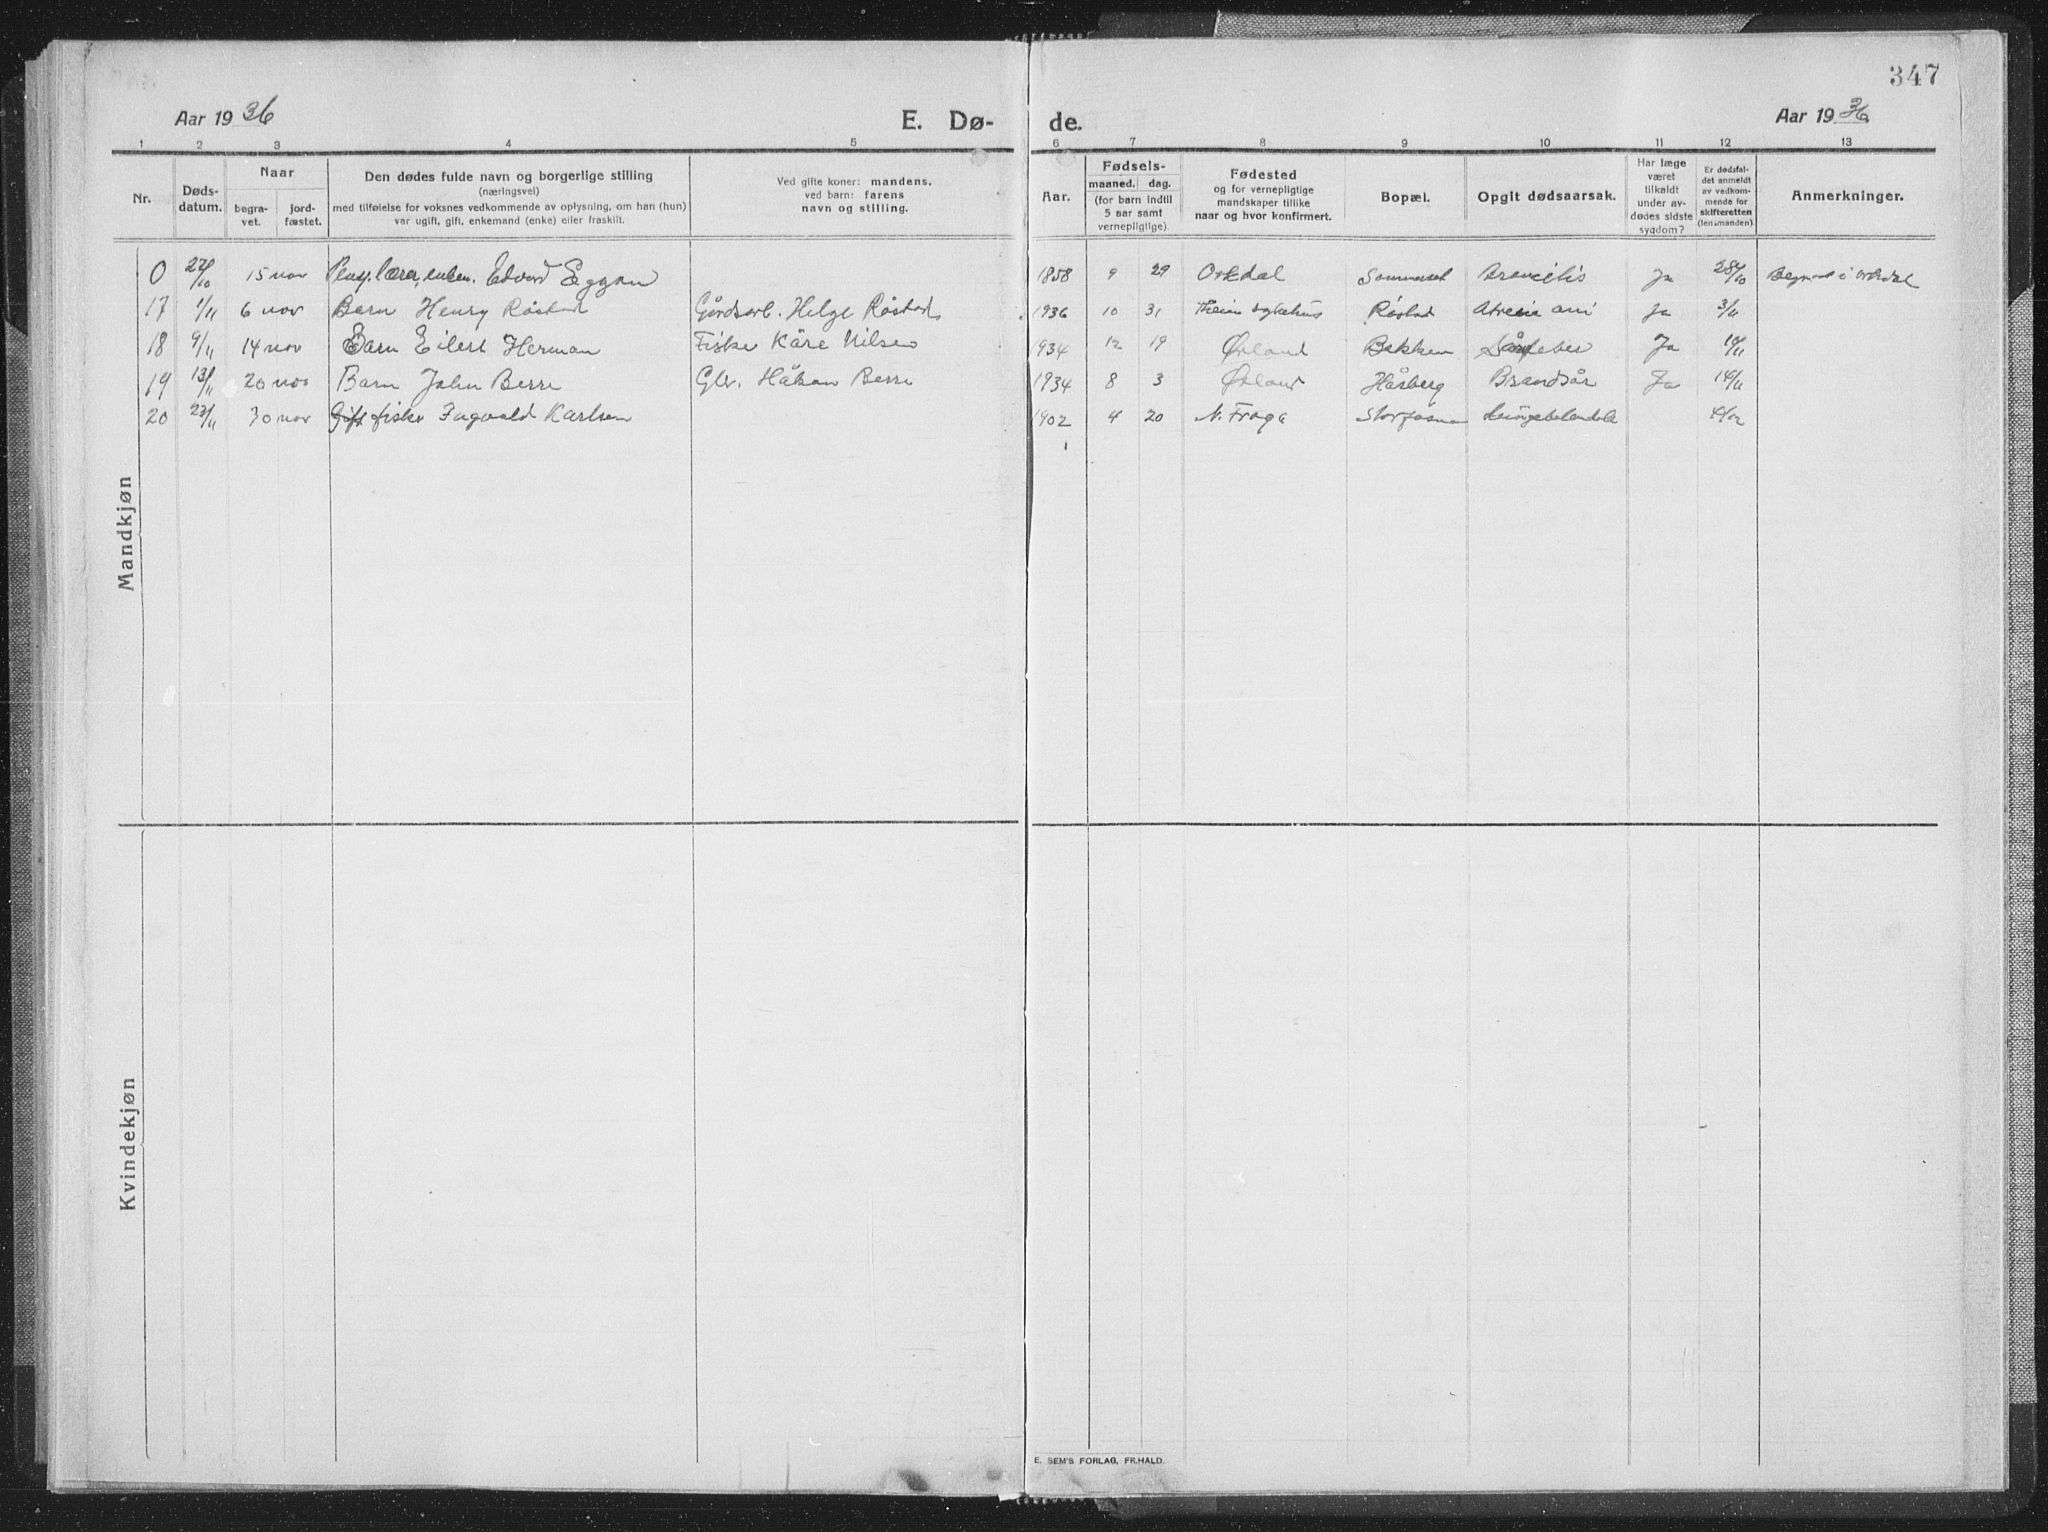 347
Aar 1936 E. Dø- de. Aar 1936
1 2 3 4 5 6 7 8 9 10 11 12 13
Nr.
Døds-
datum.
Naar
begra-
vet.
jord-
fæstet.
Den dødes fulde navn og borgerlige stilling
(næringsvei)
med tilføielse for voksnes vedkommende av oplysning, om han (hun)
var ugift, gift, enkemand (enke) eller fraskilt.
Ved gifte koner: mandens.
ved barn: farens
navn og stilling.
Aar.
Fødsels-
maaned. dag.
(for barn indtil
5 aar samt
vernepligtige).
Fødested
og for vernepligtige
mandskaper tillike
naar og hvor konfirmert.
Bopæl.
Opgit dødsaarsak.
Har læge
været
tilkaldt
under av-
dødes sidste
sygdom?
Er dødsfal-
det anmeldt
av vedkom-
mende for
skifteretten
(lensmanden)
Anmerkninger.
0 27/10 15 nov Pens. lærer, enkem. Edvard Eggan 1858 9 29 Orkdal Ja 28/10 i Orkdal
17 1/11 6 nov Barn Henry Røstad Gårdsarb. Helge Røstad 1936 10 31 sykehus Røstad Atresia ani Ja 3/11
18 9/11 14 nov Barn Eilert Herman Fisker Kåre Nilsen 1934 12 19 Ørland Bakken Sårfeber Ja 10/11
19 13/11 20 nov Barn John Berre Gbr. Håkon Berre 1934 8 3 Ørland Hårberg Brandsår Ja 14/11
20 23/11 30 nov Gift fisker Ingvald Karlsen 1902 4 20 N. Frøya Storfosna
Mandkjøn
Kvindekjøn
E. SEM'S FORLAG, FR.HALD.